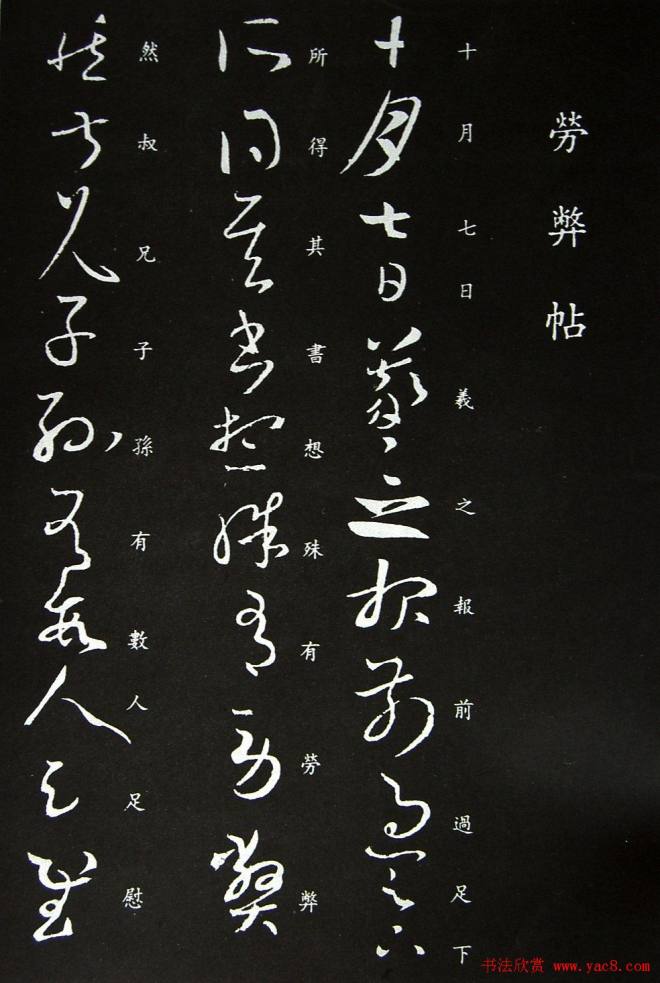 勞弊帖
十月七日羲之報前過足下
十月七日羲之報前過足下
所得其書想殊有勞弊
所得其書想殊有勞弊
然叔兄子孫有數人足慰
然叔兄子孫有數人足慰
书法欣赏 www.yac8.com